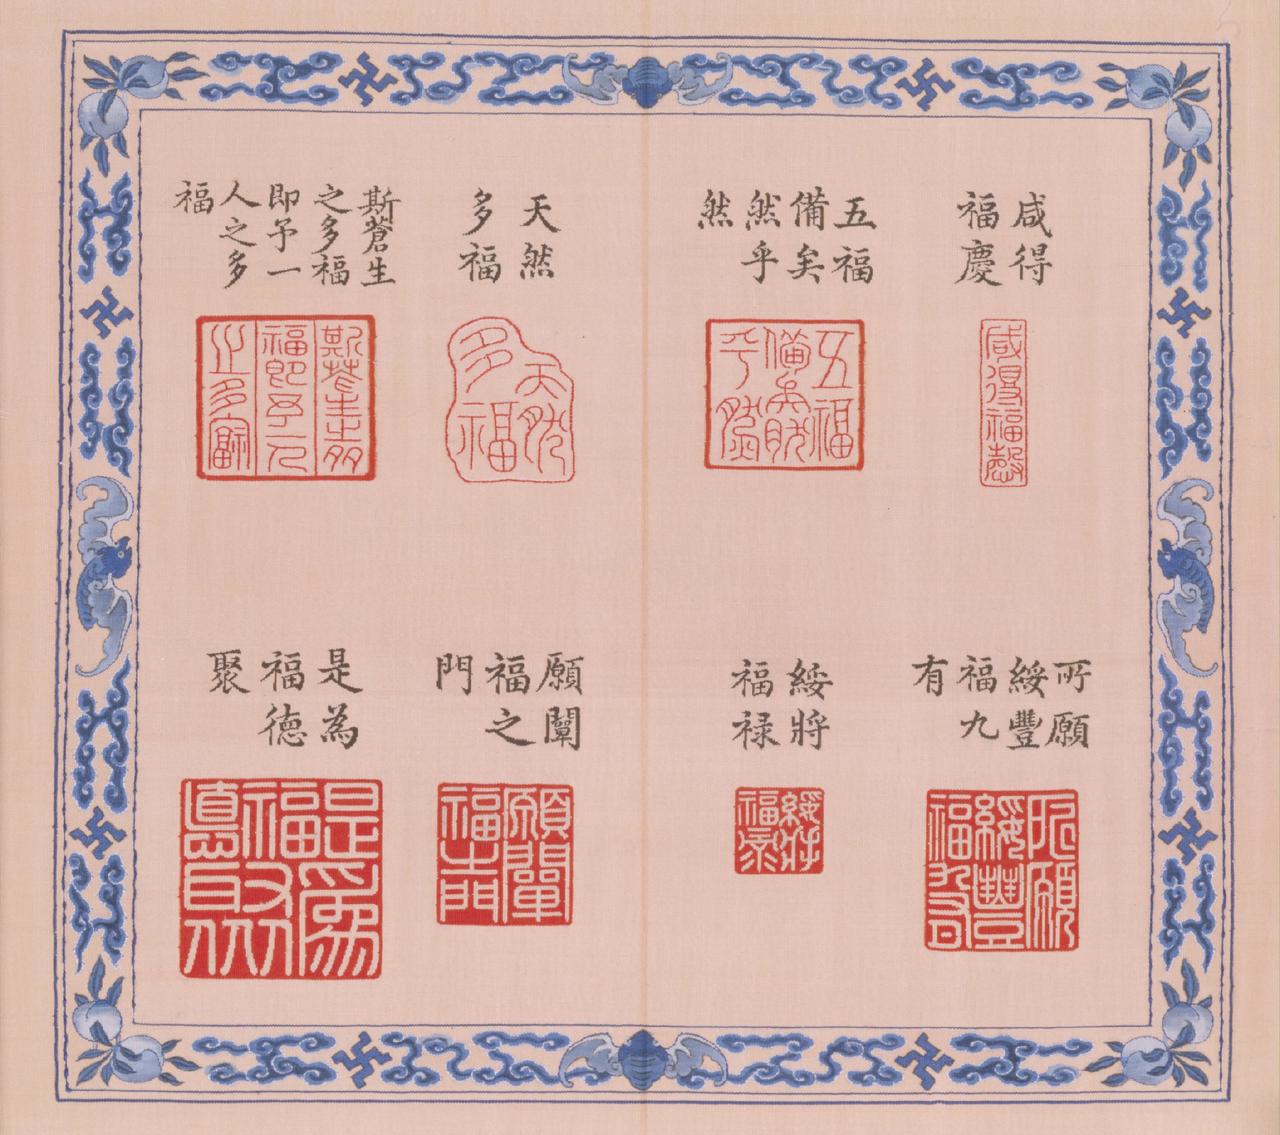 咸得
福慶
咸得福慶
五福
備矣
然乎
然
五福
備矣然
乎然
天然
多福
天然
多福
斯蒼生
之多福
即予一
人之多
福
斯蒼生之多
福即予一人
之多福
所願
綏豐
福九
有
所願
綏豐
福九有
綏將
福禄
綏將
福禄
願闡
福之
門
願闡
福之門
是為
福德
聚
是為
福德聚